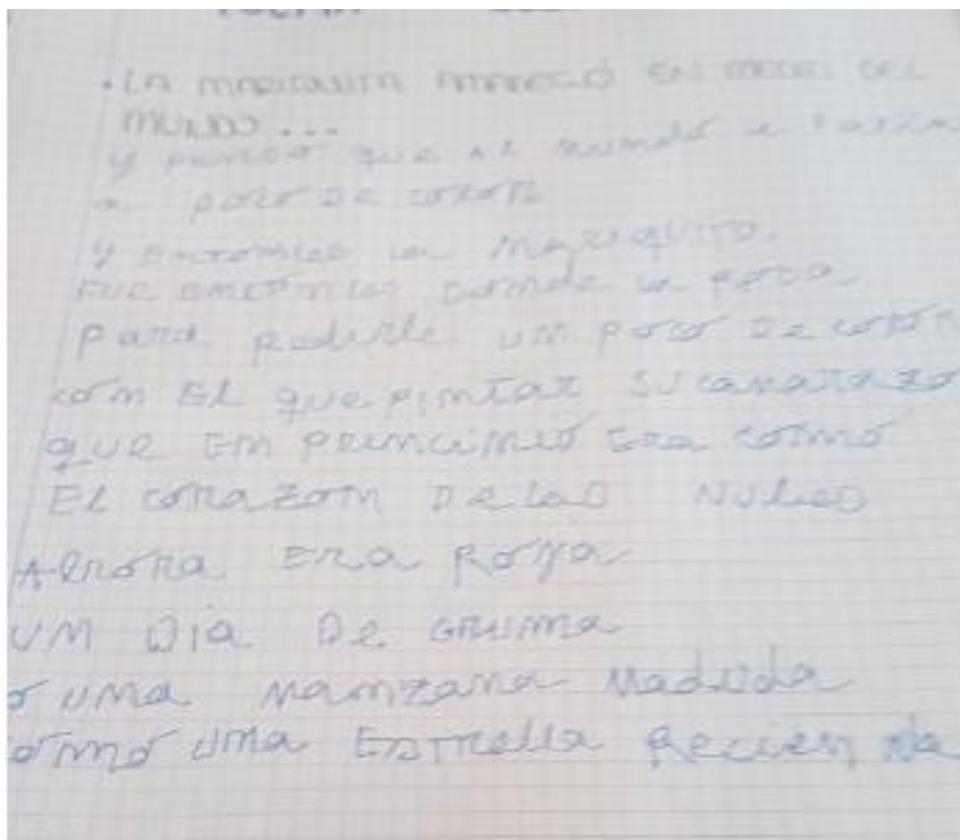 . LA MARIQUITA AMANECIÓ EN MEDIO DEL
MUNDO ...
y pensó que AL mundo le FALTABA
un poco DE color
y EntonCes la mariquita
FUE entonces donde la rosa
para pedirle un poco De color
con EL que pintar SU caparazon
que Em principio Era como
EL corazon De las Nubes
Ahora Era Roya
UM Dia De
o UMa Mamzana Maduda
omo uma Estrella Recien Na